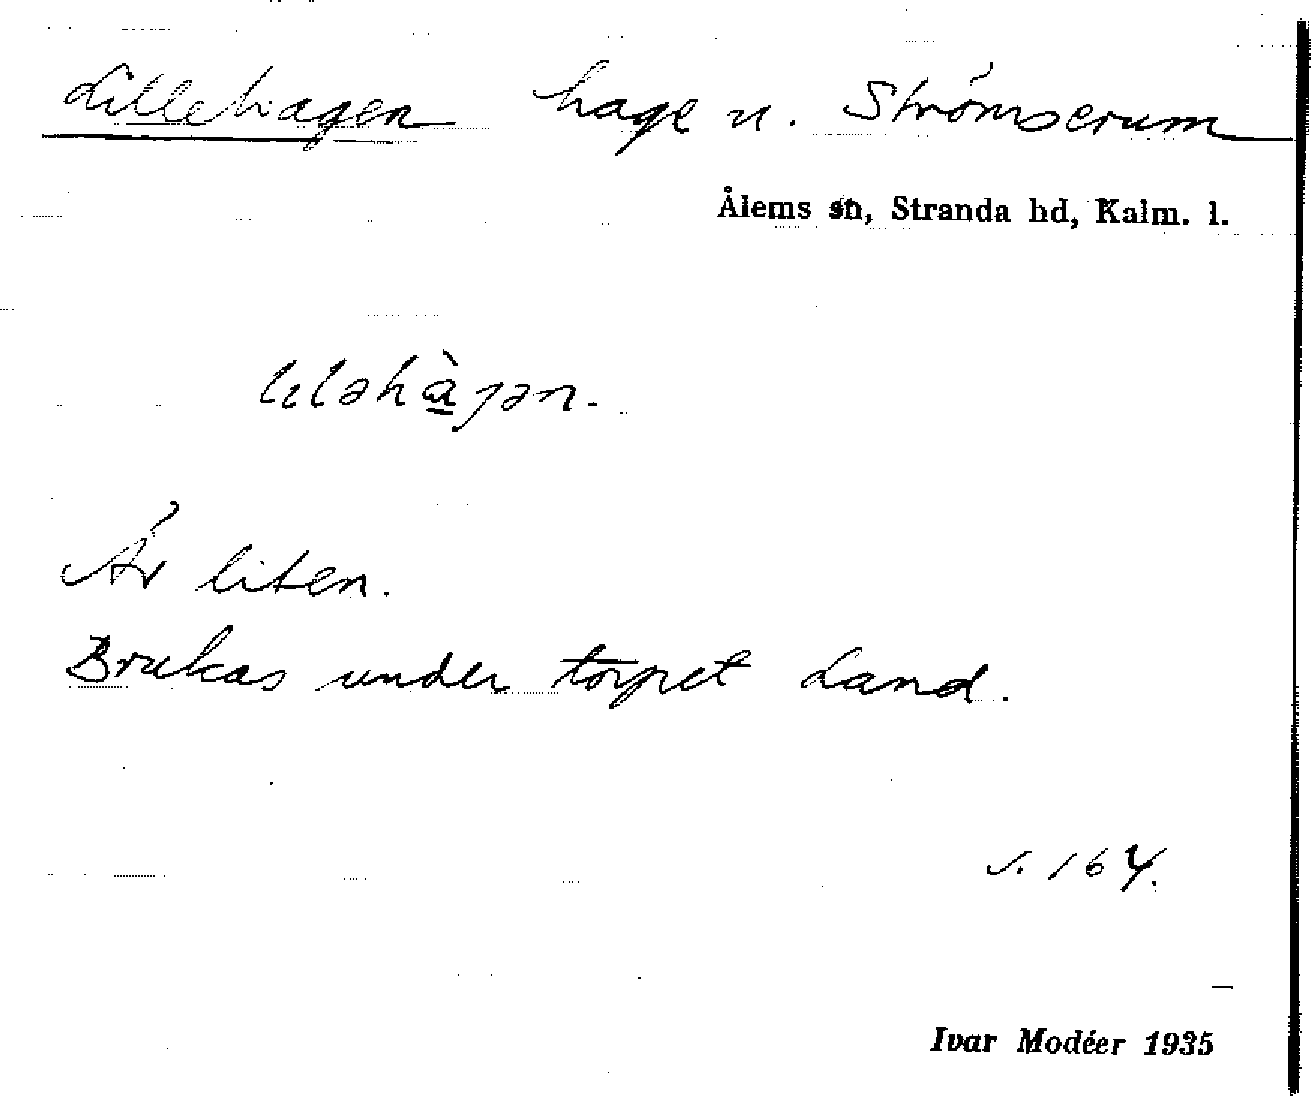 Lillehagen hage u. Strömserum
Ålems sn, Stranda hd, Kalm. l.
lıləhàgən.
Är liten.
Brukas under torpet Land.
s. 164.
Ivar Modéer 1935